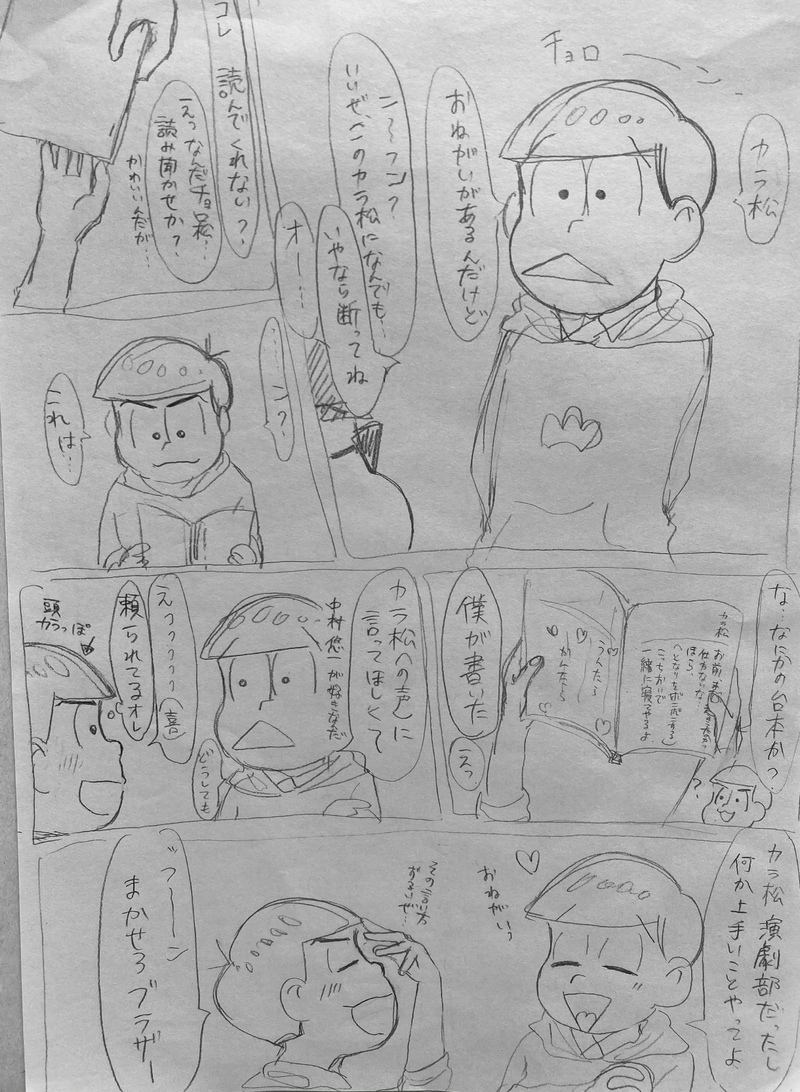 チョローン
カラ松
おねがいがあるんだけど
ン〜フン?
いいぜ、このカラ松になんでも…
いやなら断ってね
オー…
コレ 読んでくれない?
えっなんだチョロ松…
読み聞かせか?
かわいい奴だが…
…ン?
これは…
な…なにかの台本か?
カラ松
お前
ほら、
こっちおいで
一緒に寝てやるよ
うんたら
かんたら
?
僕が書いた
えっ
カラ松への声に
言ってほしくて
中村悠一が好きなんだ
どうしても
えっっっっっ(喜)
頼られてるオレ
頭
カラっぽ
カラ松 演劇部だったし
何か上手いことやってよ
おねがいっ
その言い方
ずるいぜ…
ッフ〜〜ン
まかせろブラザー